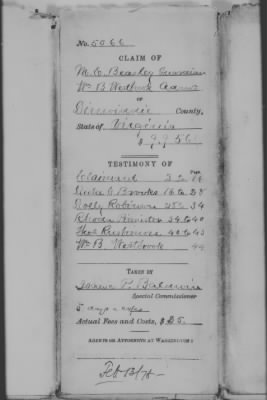 No. 5066
CLAIM OF
M. C. Beasley Guardian
Wm B Westbrook Admr
OF
Dinwiddie County,
State of Virginia
$ 9956
TESTIMONY OF
Page
Claimant 2 to
Brooks 16 to 25
Dolly Robinson 25 to 34
Rhoda 34 to 40
Thos 40 to 43
Wm B. Westbrook 44
TAKEN BY
Special Commissioner
5 days
Actual Fees and Costs, $25.
AGENTS OR ATTORNEYS AT WASHINGTON:
Feb 13/78